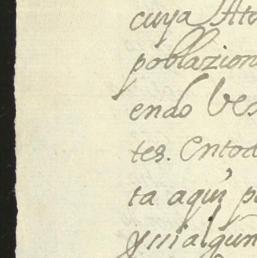 cuya Ato
poblazion
endo Ves
tes. Entod
ta aqui p
y si algun